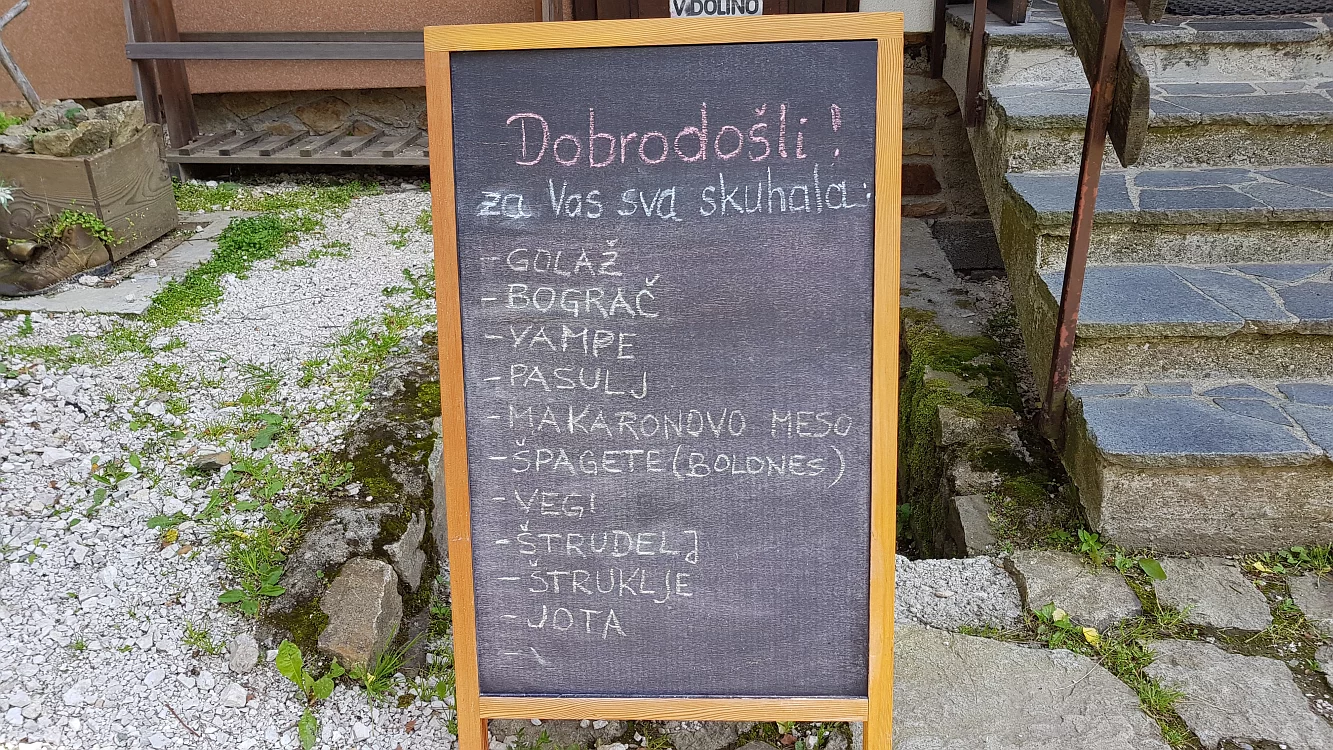 V DOLINO
Dobrodošli!
za Vas sva skuhala:
- GOLAŽ
- BOGRAČ
- VAMPE
- PASULJ
- MAKARONOVO MESO
- ŠPAGETE (BOLONES)
- VEGI
- ŠTRUDELJ
- ŠTRUKLJE
- JOTA
-